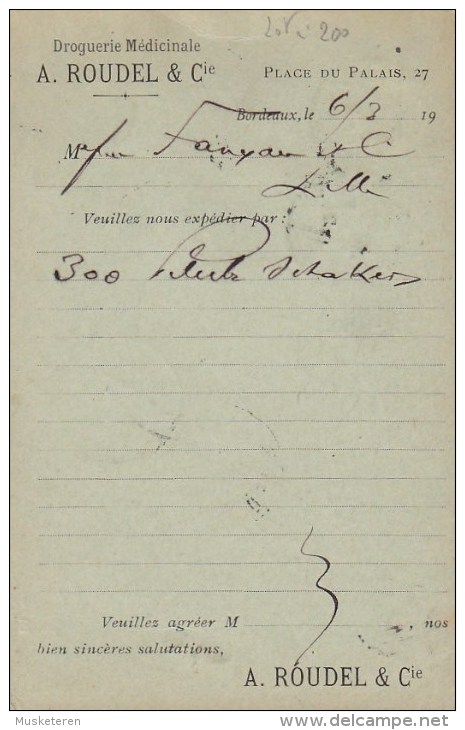 Droguerie Médicinale
A. ROUDEL & Cie
PLACE DU PALAIS, 27
Bordeaux, le 6/3 19
M Fanyau & C
Lille
Veuillez nous expédier par :
300
Veuillez agréer M , nos
bien sincères salutations,
A. ROUDEL & Cie
Musketeren
delcampe.net